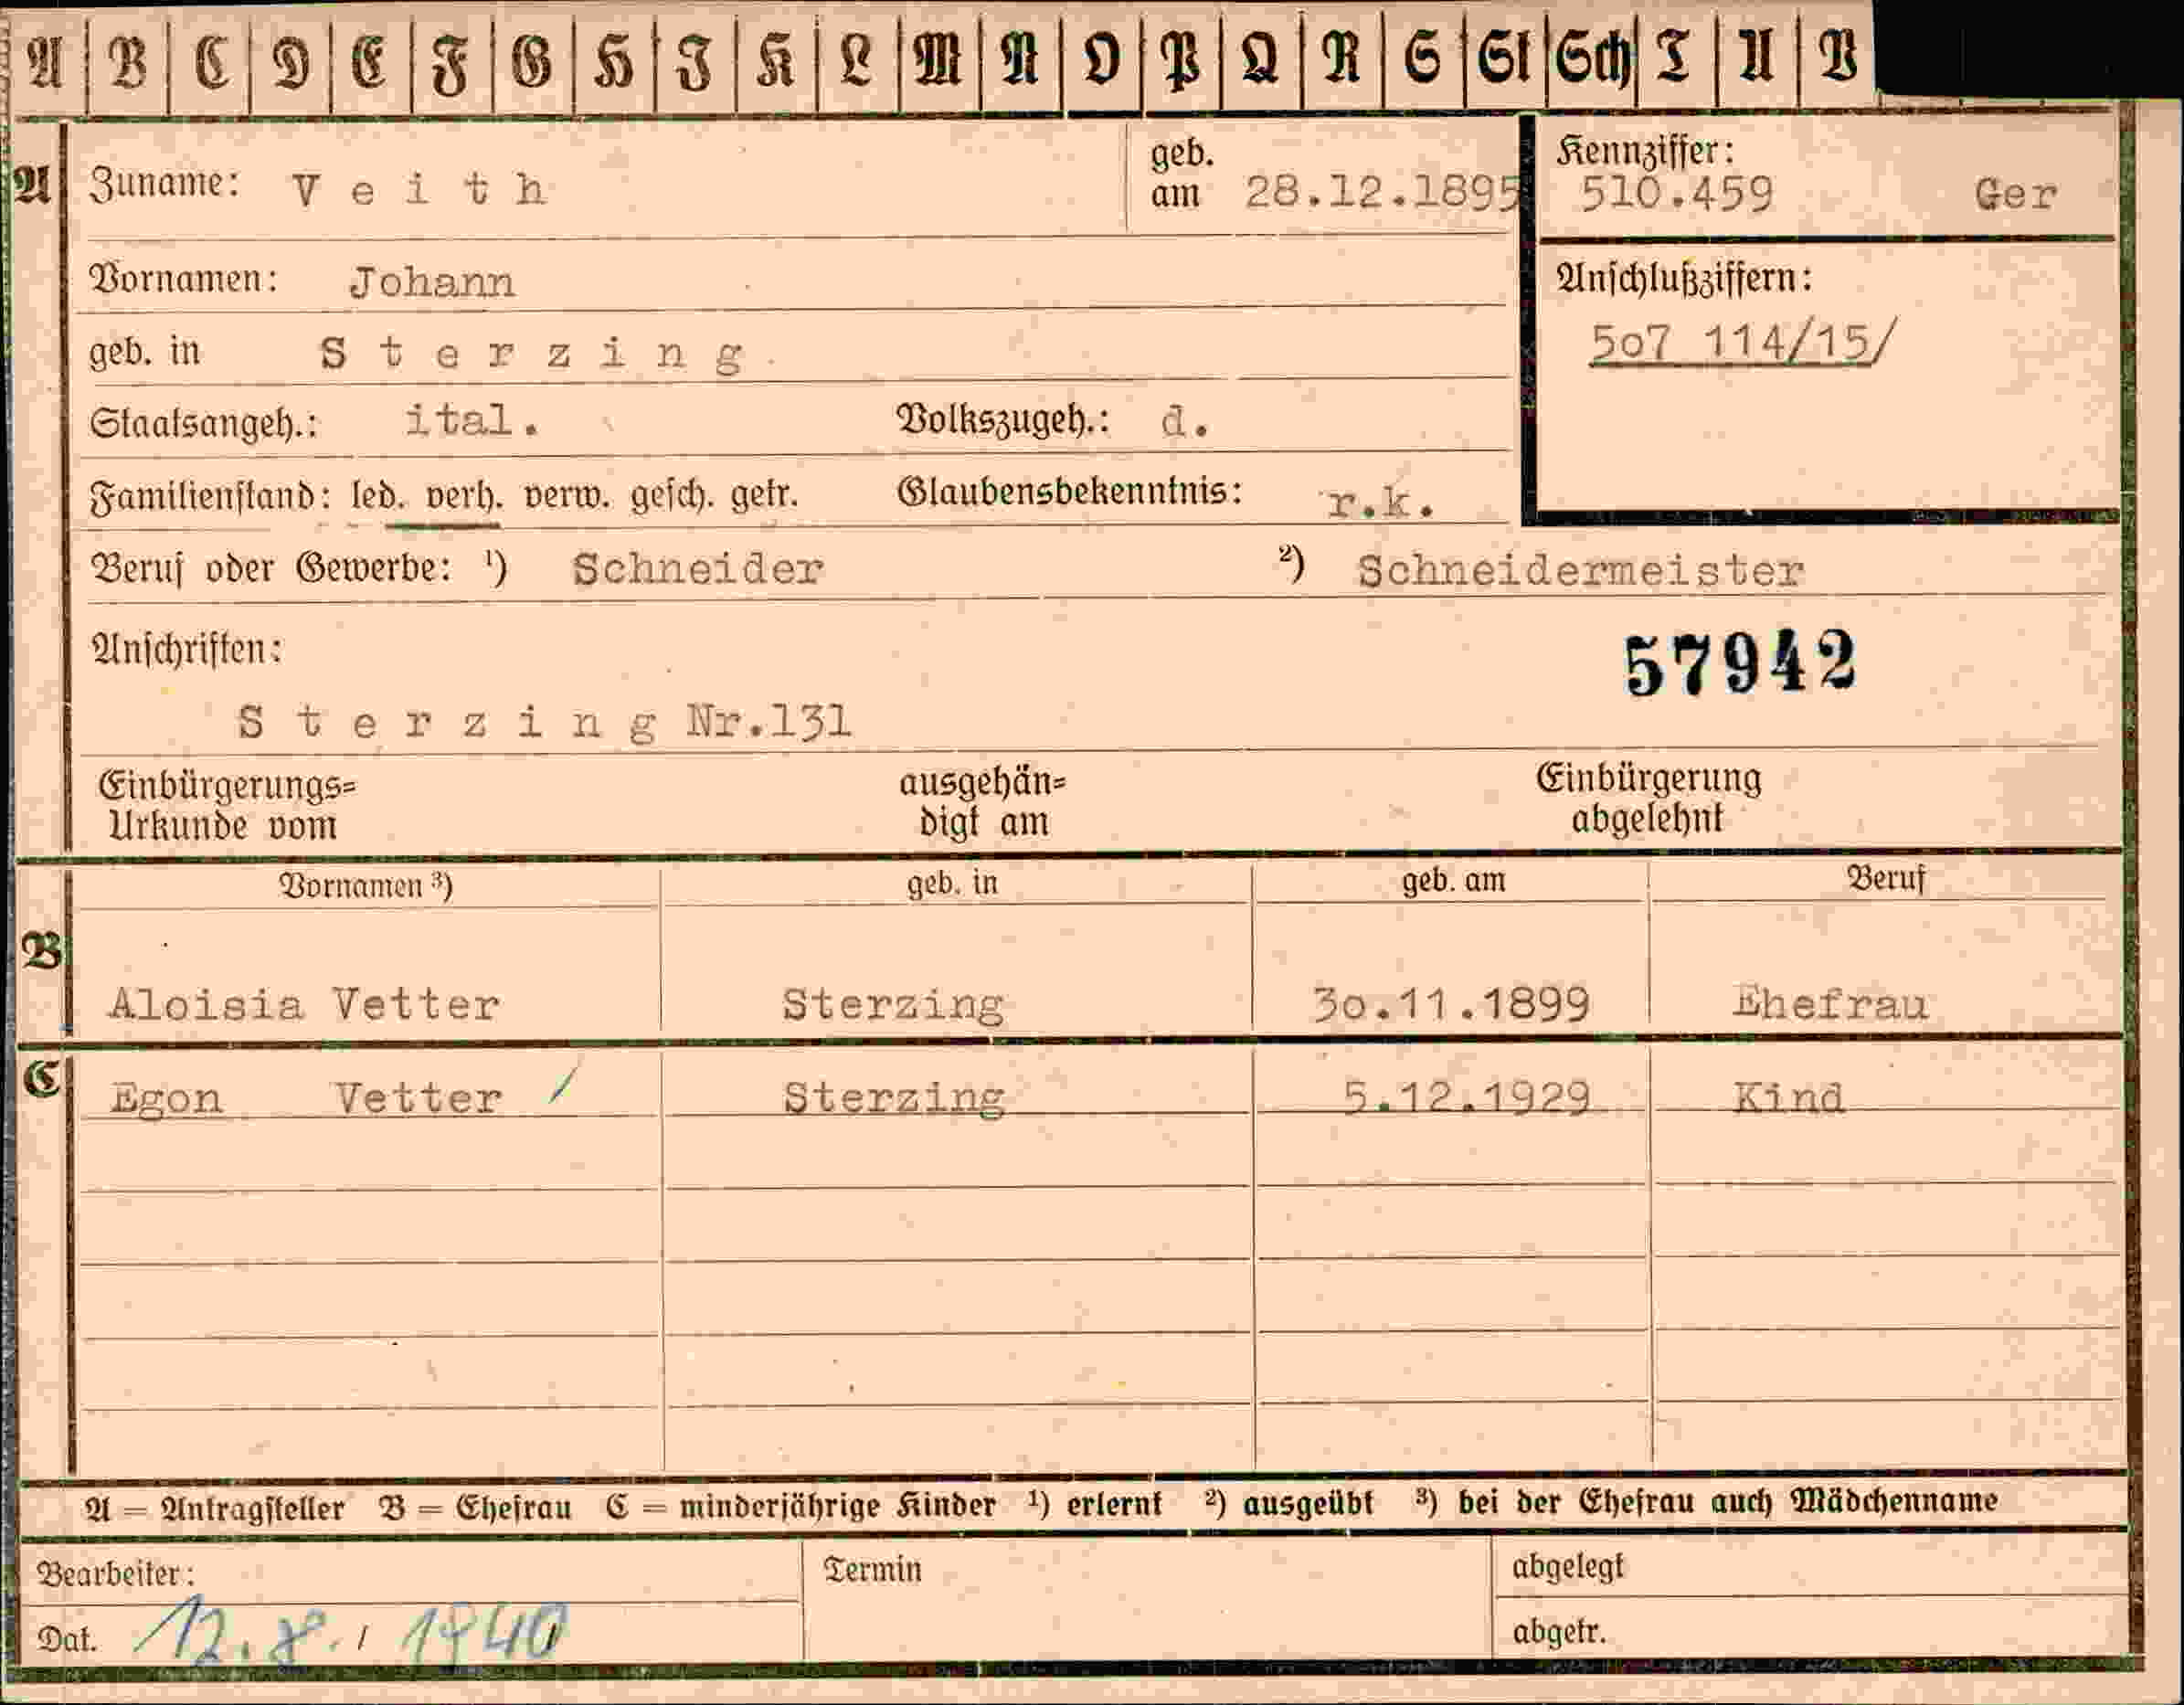 A B C D E F G H I K L M N O P Q R S St Sch T U V
A Zuname: V e i t h geb. am 28.12.1895 Kennziffer: 510.459 Ger
Vornamen: Johann Anschlußziffern:
geb. in S t e r z i n g 507 114/15/
Staatsangeh.: ital. Volkszugeh.: d.
Familienstand: led. verh. verw. gesch. getr. Glaubensbekenntnis: r.k.
Beruf oder Gewerbe: ¹) Schneider ²) Schneidermeister
Anschriften: 57942
S t e r z i n g Nr.131
Einbürgerungs= ausgehän= Einbürgerung
Urkunde vom digt am abgelehnt
Vornamen ³) geb. in geb. am Beruf
B
Aloisia Vetter Sterzing 30.11.1899 Ehefrau
C Egon Vetter / Sterzing 5.12.1929 Kind
A = Antragsteller B = Ehefrau C = minderjährige Kinder ¹) erlernt ²) ausgeübt ³) bei der Ehefrau auch Mädchenname
Bearbeiter: Termin abgelegt
Dat. 12.8. 1940 abgetr.